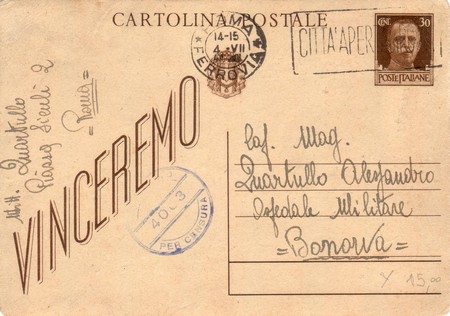 CARTOLINA POSTALE
ROMA
FERROVIA
14-15
4 VII
CITTÀ APER
CENT 30
POSTE ITALIANE
VINCEREMO
Quartullo
Piazza Siculi 2
Roma
Mag.
Quartullo Alessandro
Militare
Bonorva
40 3
PER CENSURA
15,00